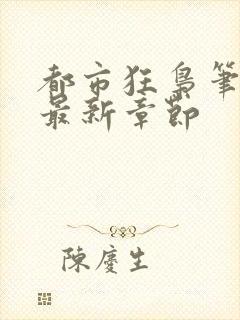 都市狂梟筆
最新章節
陳慶生